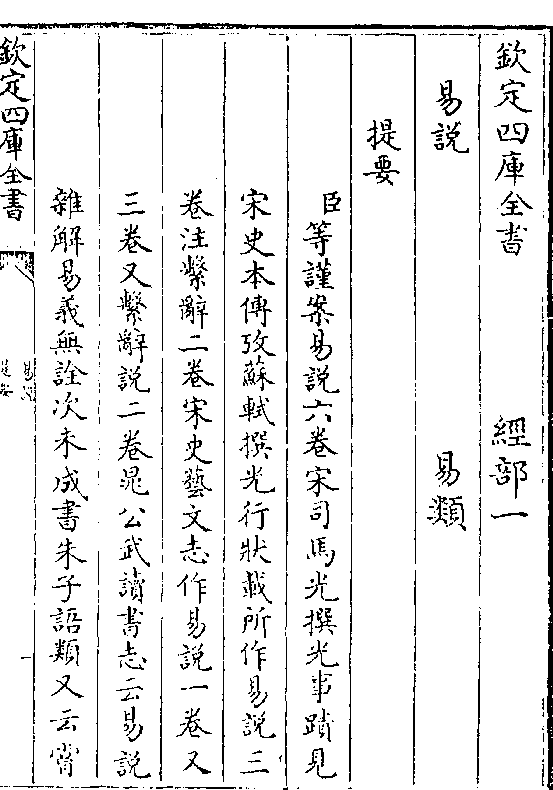 欽定四庫全書 經部一
易說 易類
提要
臣等謹案易說六卷宋司馬光撰光事蹟見
宋史本傳攷蘇軾撰光行狀載所作易說三
卷注繫辭二卷宋史藝文志作易說一卷又
三卷又繫辭說二卷晁公武讀書志云易說
雜解易義無詮次未成書朱子語類又云嘗
欽定四庫全書